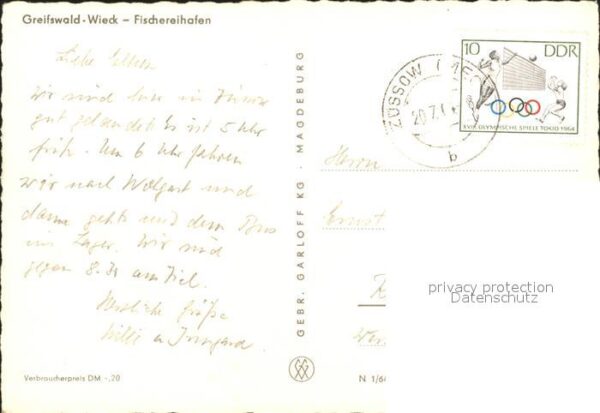 Greifswald-Wieck – Fischereihafen
Liebe Eltern
wir sind hier in Züssow
gut gelandet. Es ist 5 Uhr
früh. Um 6 Uhr fahren
wir nach Wolgast und
dann gehts mit dem Bus
ins Lager. Wir sind
gegen 8.30 am Ziel.
Herzliche Grüße
Willi u Irmgard.
Verbraucherpreis DM -,20
GEBR. GARLOFF KG · MAGDEBURG
N 1/64
ZÜSSOW
20.7.6
b
10 DDR
XVIII. OLYMPISCHE SPIELE TOKIO 1964
Herrn
Ernst
privacy protection
Datenschutz